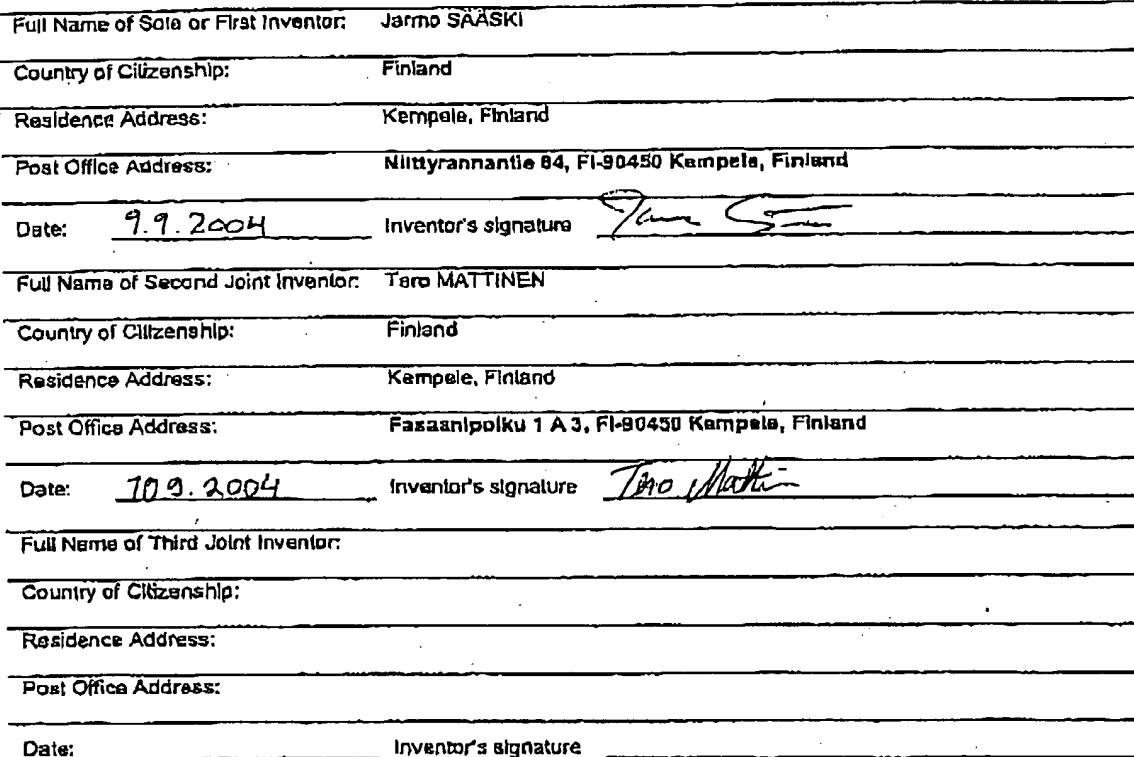 Full Name of Sole or First Inventor: Jarmo SÄÄSKI
Country of Citizenship: Finland
Residence Address: Kempele, Finland
Post Office Address: Niittyrannantie 84, FI-90450 Kempele, Finland
Date: 9.9.2004 Inventor's signature
Full Name of Second Joint Inventor: Tero MATTINEN
Country of Citizenship: Finland
Residence Address: Kempele, Finland
Post Office Address: Fasaanipolku 1 A 3, FI-90450 Kempele, Finland
Date: 10 9. 2004 Inventor's signature Tero
Full Name of Third Joint Inventor:
Country of Citizenship:
Residence Address:
Post Office Address:
Date: Inventor's signature